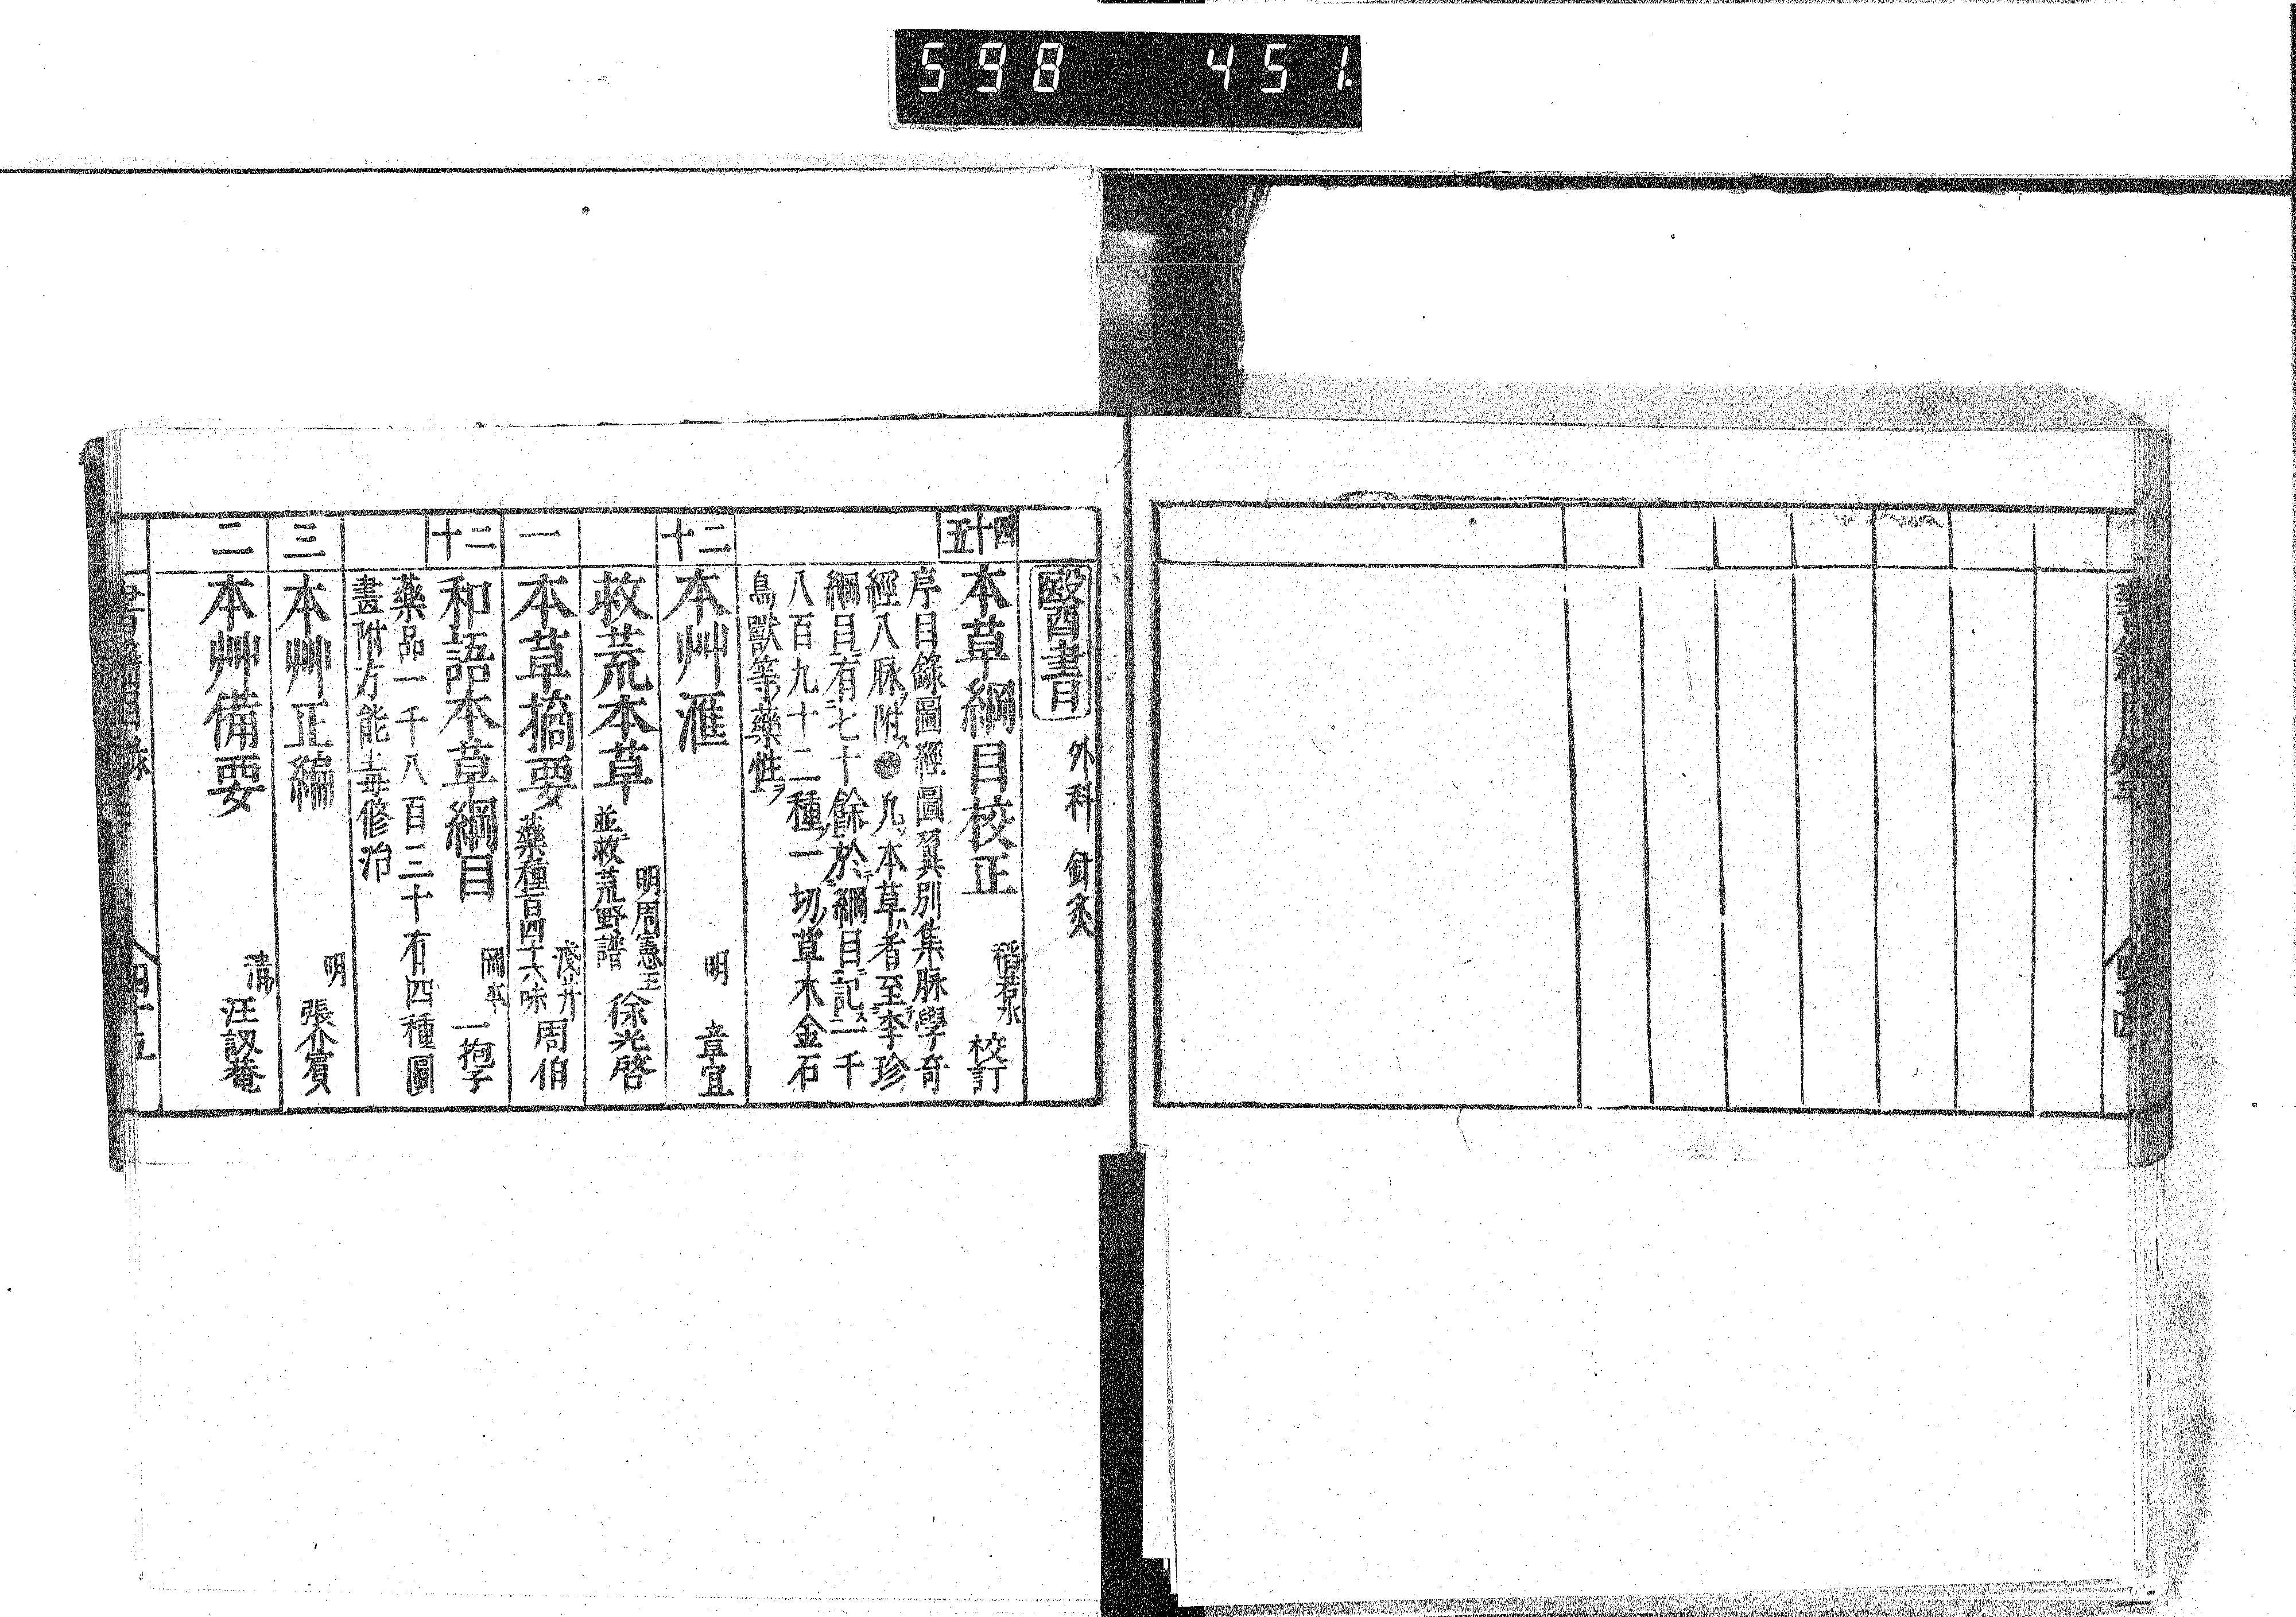 598 451
醫書目 外科 針灸
四十五
本草綱目校正 稻若水 校訂
序目錄圖經圖翼別集脉學奇
經八脉ヲ附ス●凡ソ本草ハ者至李珍
綱目ニ有七十餘於綱目ニ記ス一千
八百九十二種ノ一切ノ草木金石
鳥獸等ノ藥性ヲ
二十
本艸滙 明 章宜
救荒本草 明周憲王 徐光啓
並救荒野譜
一
本草摘要 淺井 周伯
藥種百四十六味
二十
和語本草綱目 岡本 一抱子
藥品一千八百三十有四種圖
畫附方能毒修治
三
本艸正編 明 張介賓
二
本艸備要 清 汪訒菴